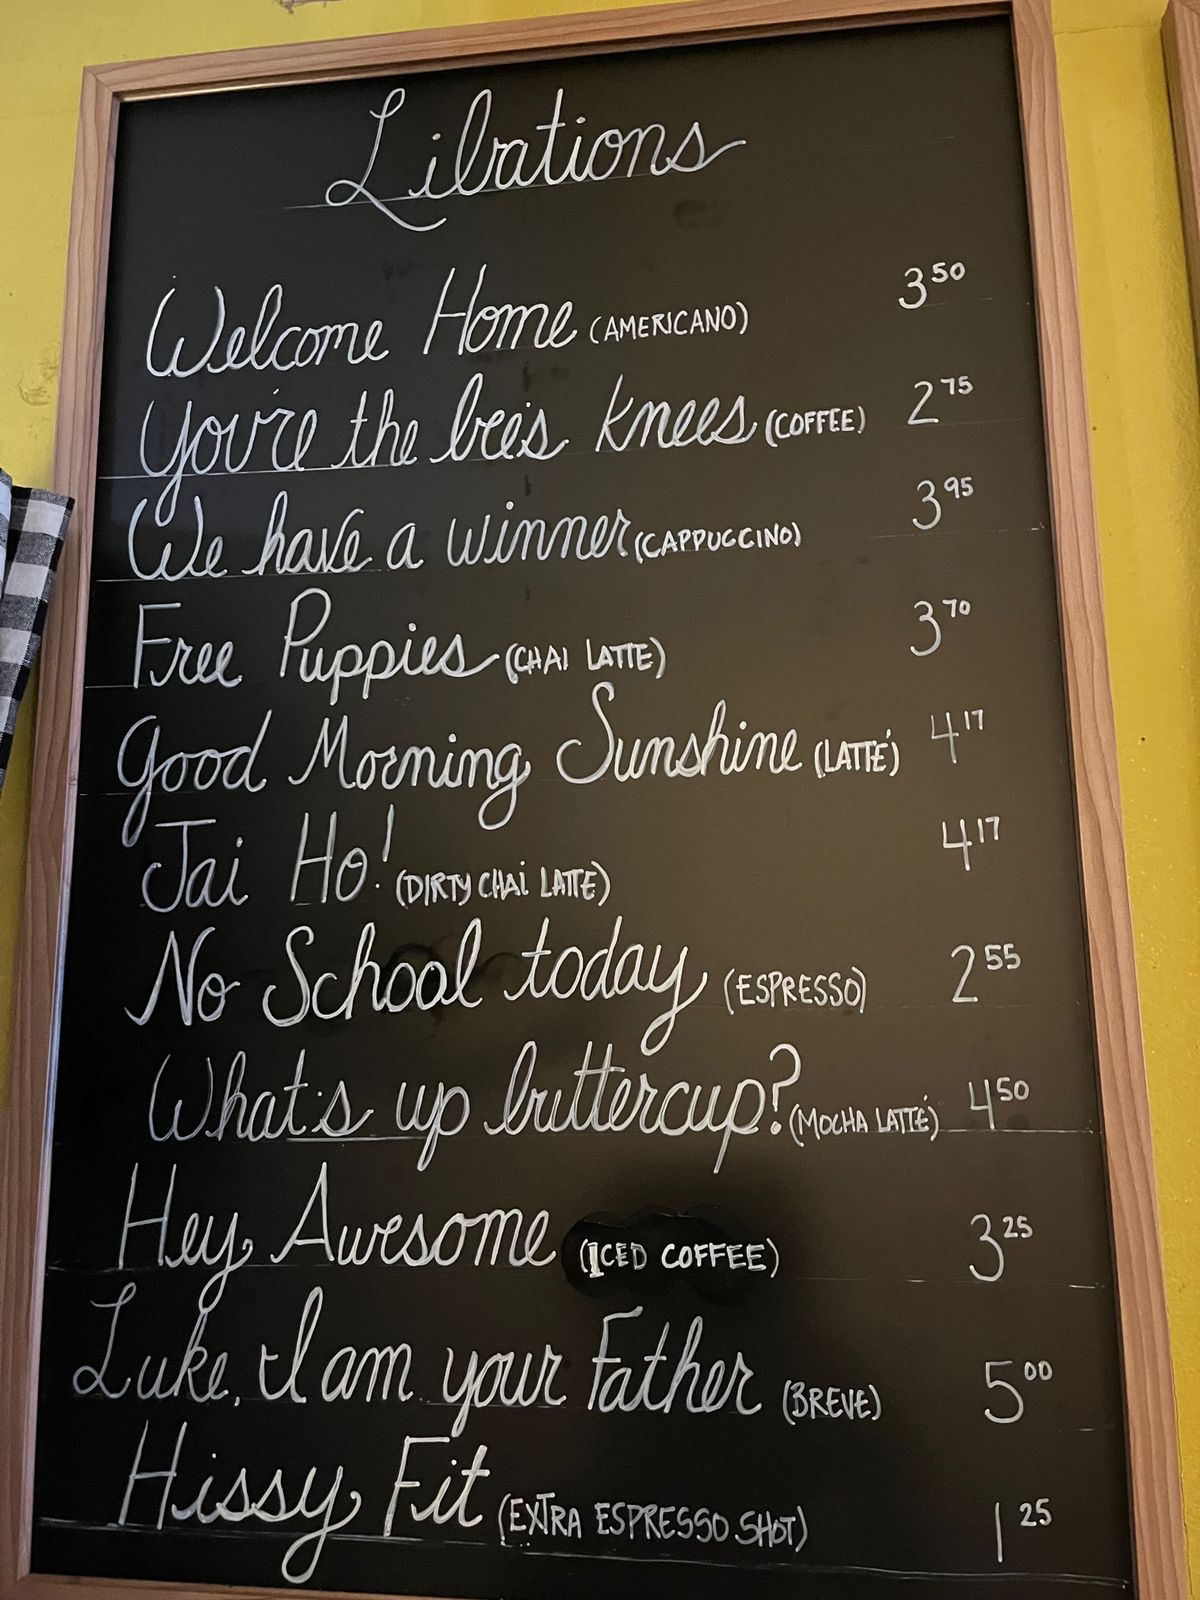 Libations
Welcome Home (AMERICANO) 3.50
You're the bee's knees (COFFEE) 2.75
We have a winner (CAPPUCCINO) 3.95
Free Puppies (CHAI LATTE) 3.70
Good Morning Sunshine (LATTÉ) 4.17
Jai Ho! (DIRTY CHAI LATTE) 4.17
No School today (ESPRESSO) 2.55
What's up buttercup? (MOCHA LATTÉ) 4.50
Hey Awesome (ICED COFFEE) 3.25
Luke, I am your Father (BREVE) 5.00
Hissy Fit (EXTRA ESPRESSO SHOT) 1.25